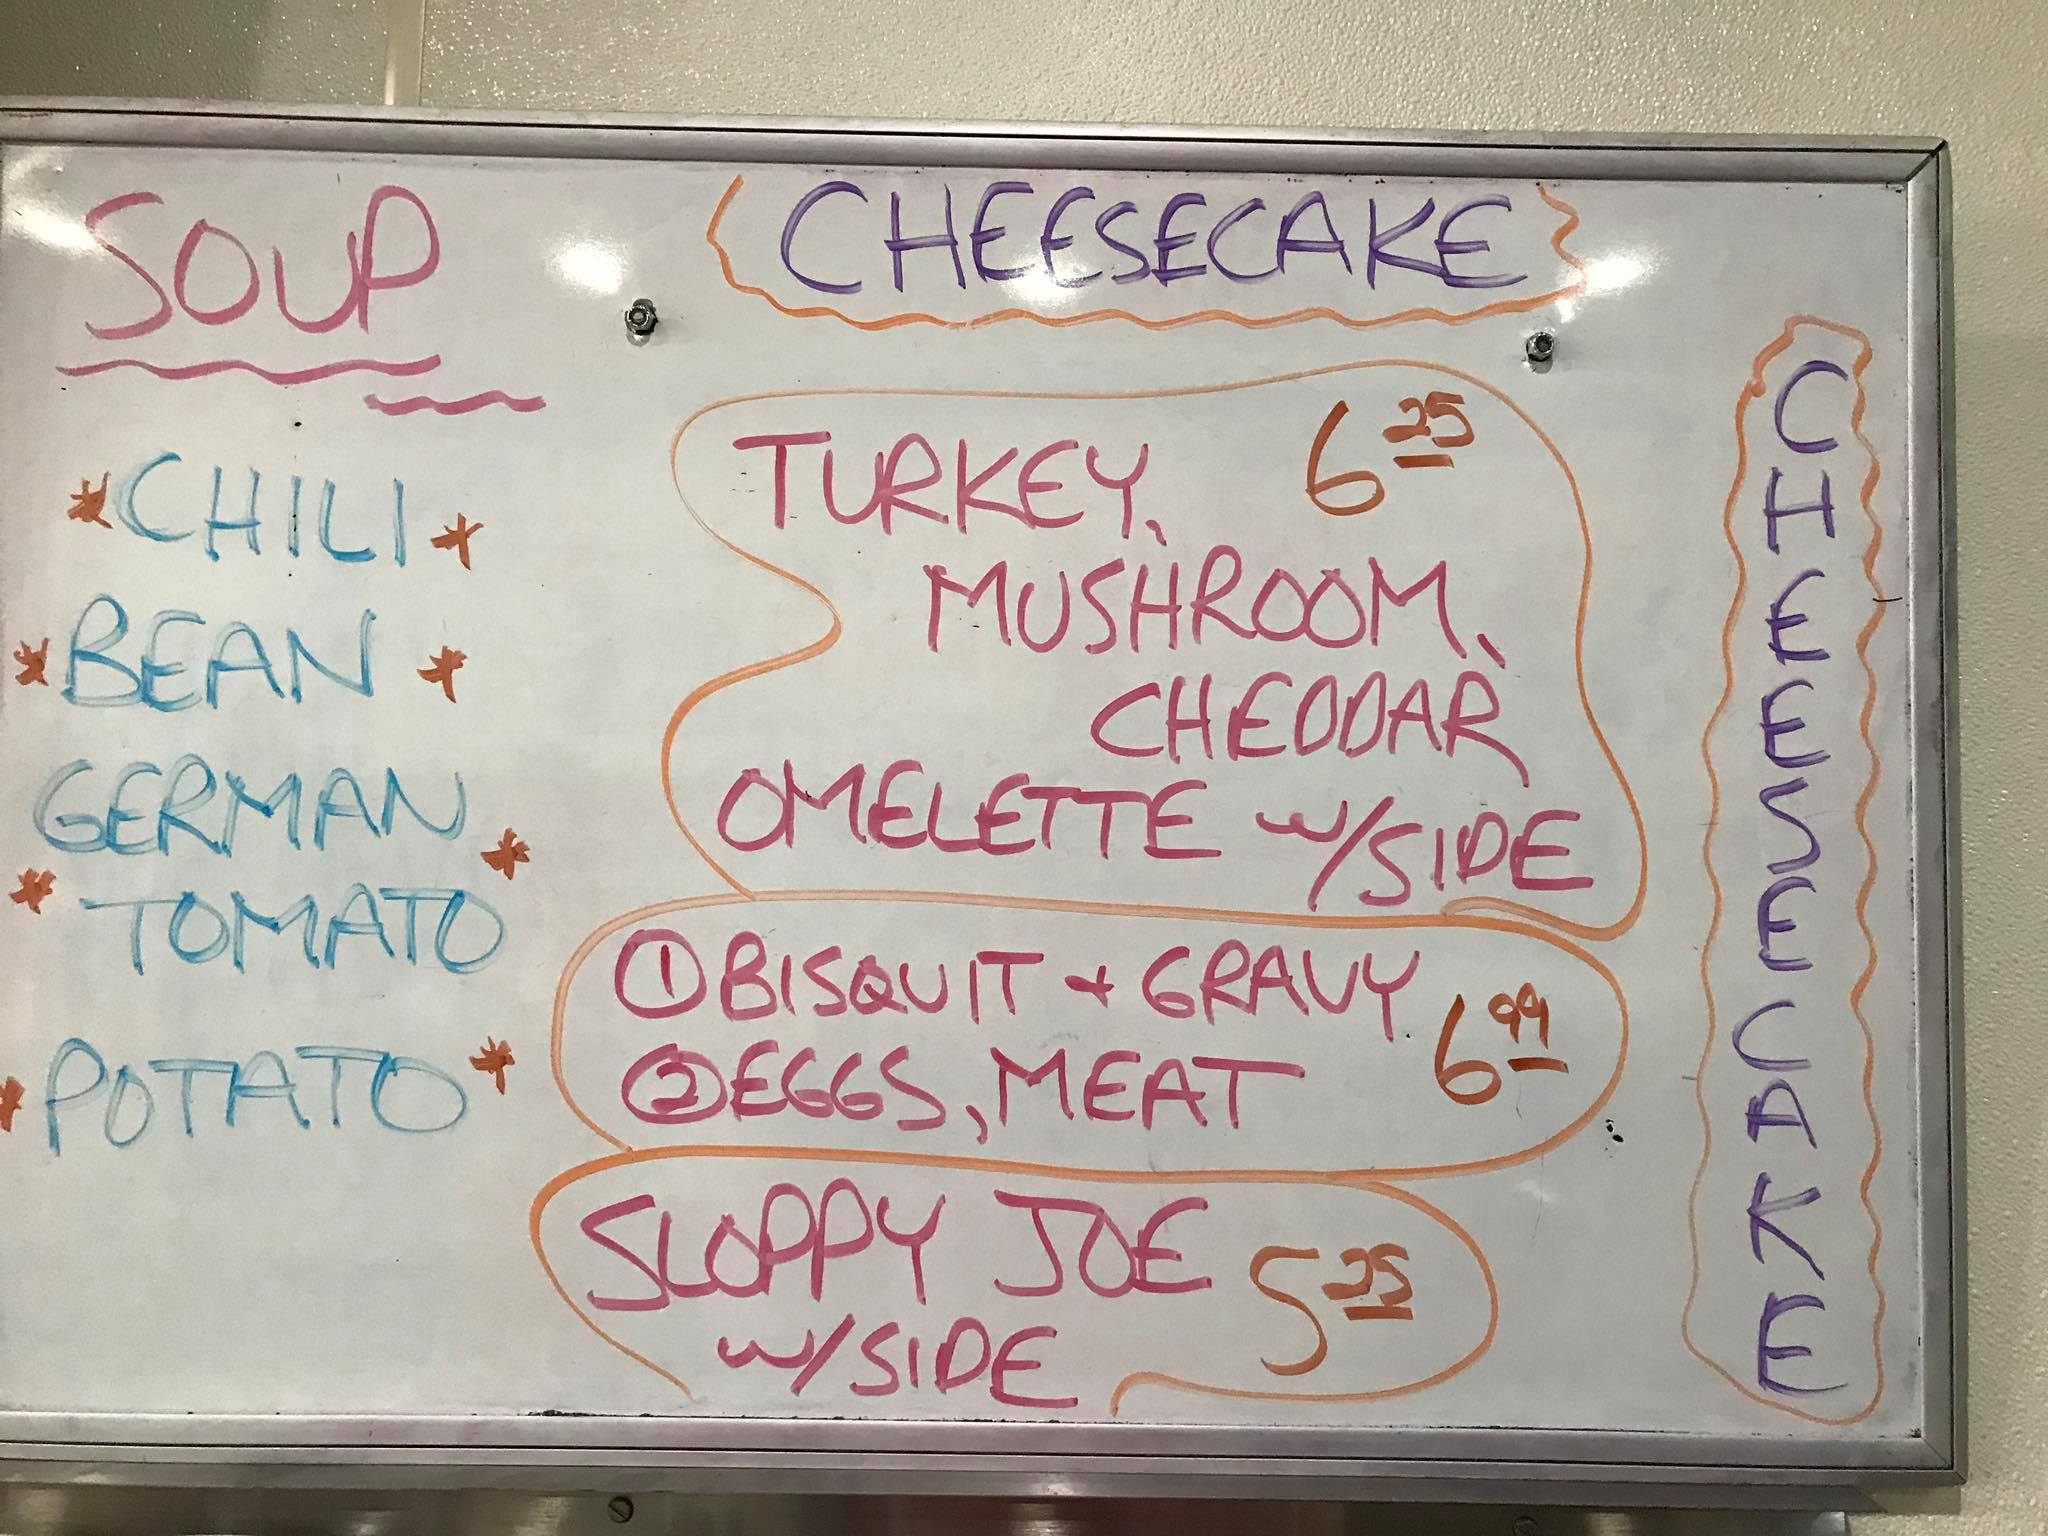 SOUP
CHILI
BEAN
GERMAN
TOMATO
POTATO
CHEESECAKE
TURKEY, 6 25
MUSHROOM,
CHEDDAR
OMELETTE w/SIDE
① BISQUIT + GRAVY
② EGGS, MEAT 6 99
SLOPPY JOE 5 25
w/SIDE
CHEESECAKE